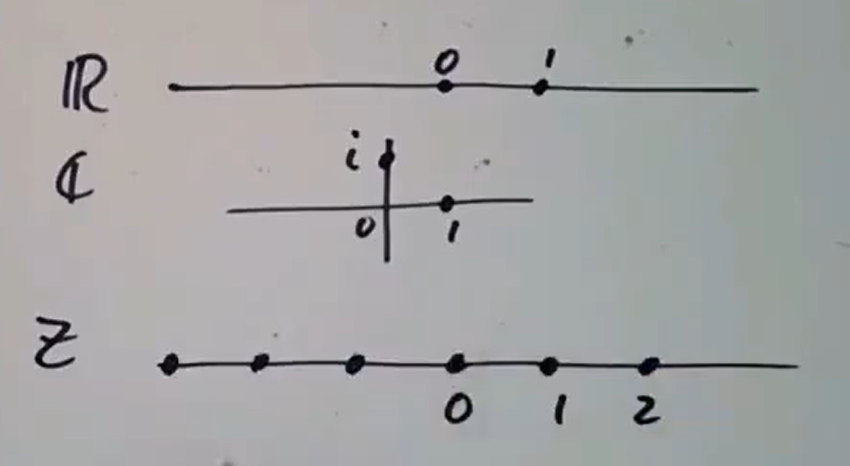 ℝ 0 1
ℂ i
0 1
ℤ
0 1 2